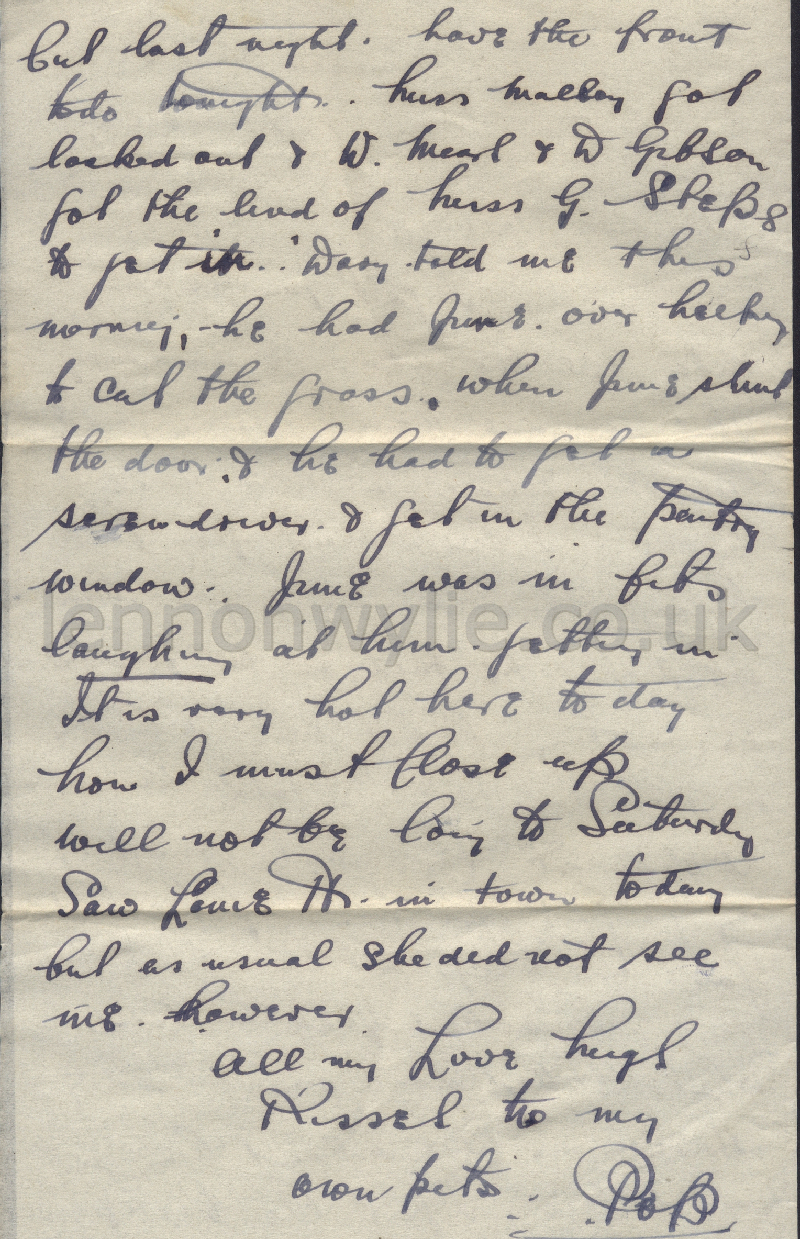 cut last night. have the front
to do tonight. Miss Malley got
locked out & W. Mearl & W Gibson
got the lend of Miss G. Steps
to get in. Davy told me this
morning, he had June over helping
to cut the grass. when June shut
the door, & he had to get a
screwdriver & get in the pantry
window. June was in fits
laughing at him getting in
It is very hot here to day
now I must Close up
will not be long to Saturday
Saw H. in town today
but as usual she did not see
me. however
all my Love hugs
Kisses to my
own pets. Pop
lennonwylie.co.uk